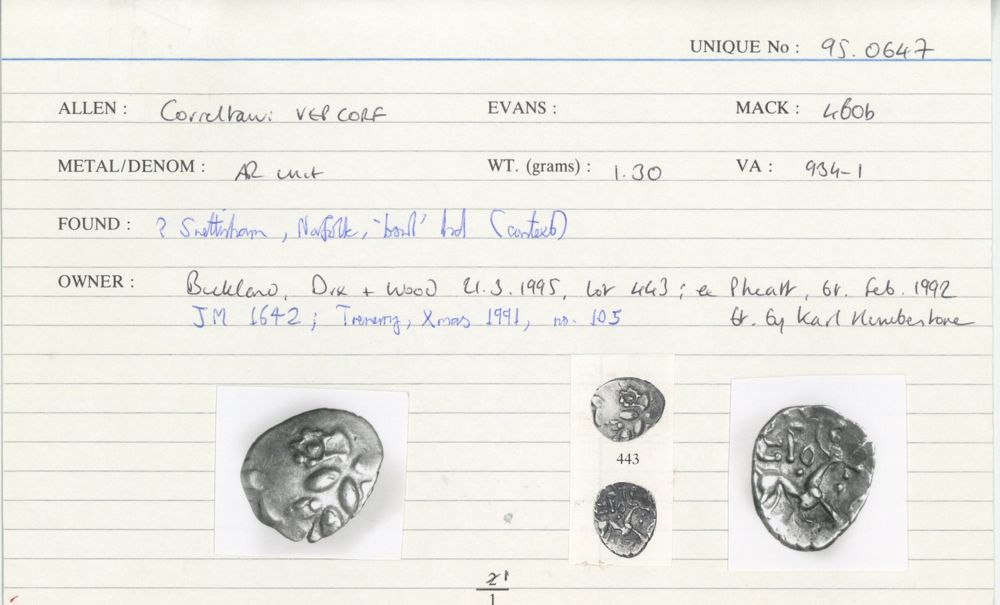 UNIQUE No : 95.0647
ALLEN : Corieltauvi VEP CORF EVANS : MACK : 460b
METAL/DENOM : AR unit WT. (grams) : 1.30 VA : 934-1
FOUND : ? Snettisham, Norfolk, 'bowl' hd (contexts)
OWNER : Buckland, Dix + Wood 21.3.1995, lot 443; ex Pheatt, bt. Feb. 1992
JM 1642; Tremeny, Xmas 1991, no. 105 bt. by Karl
443
21
1